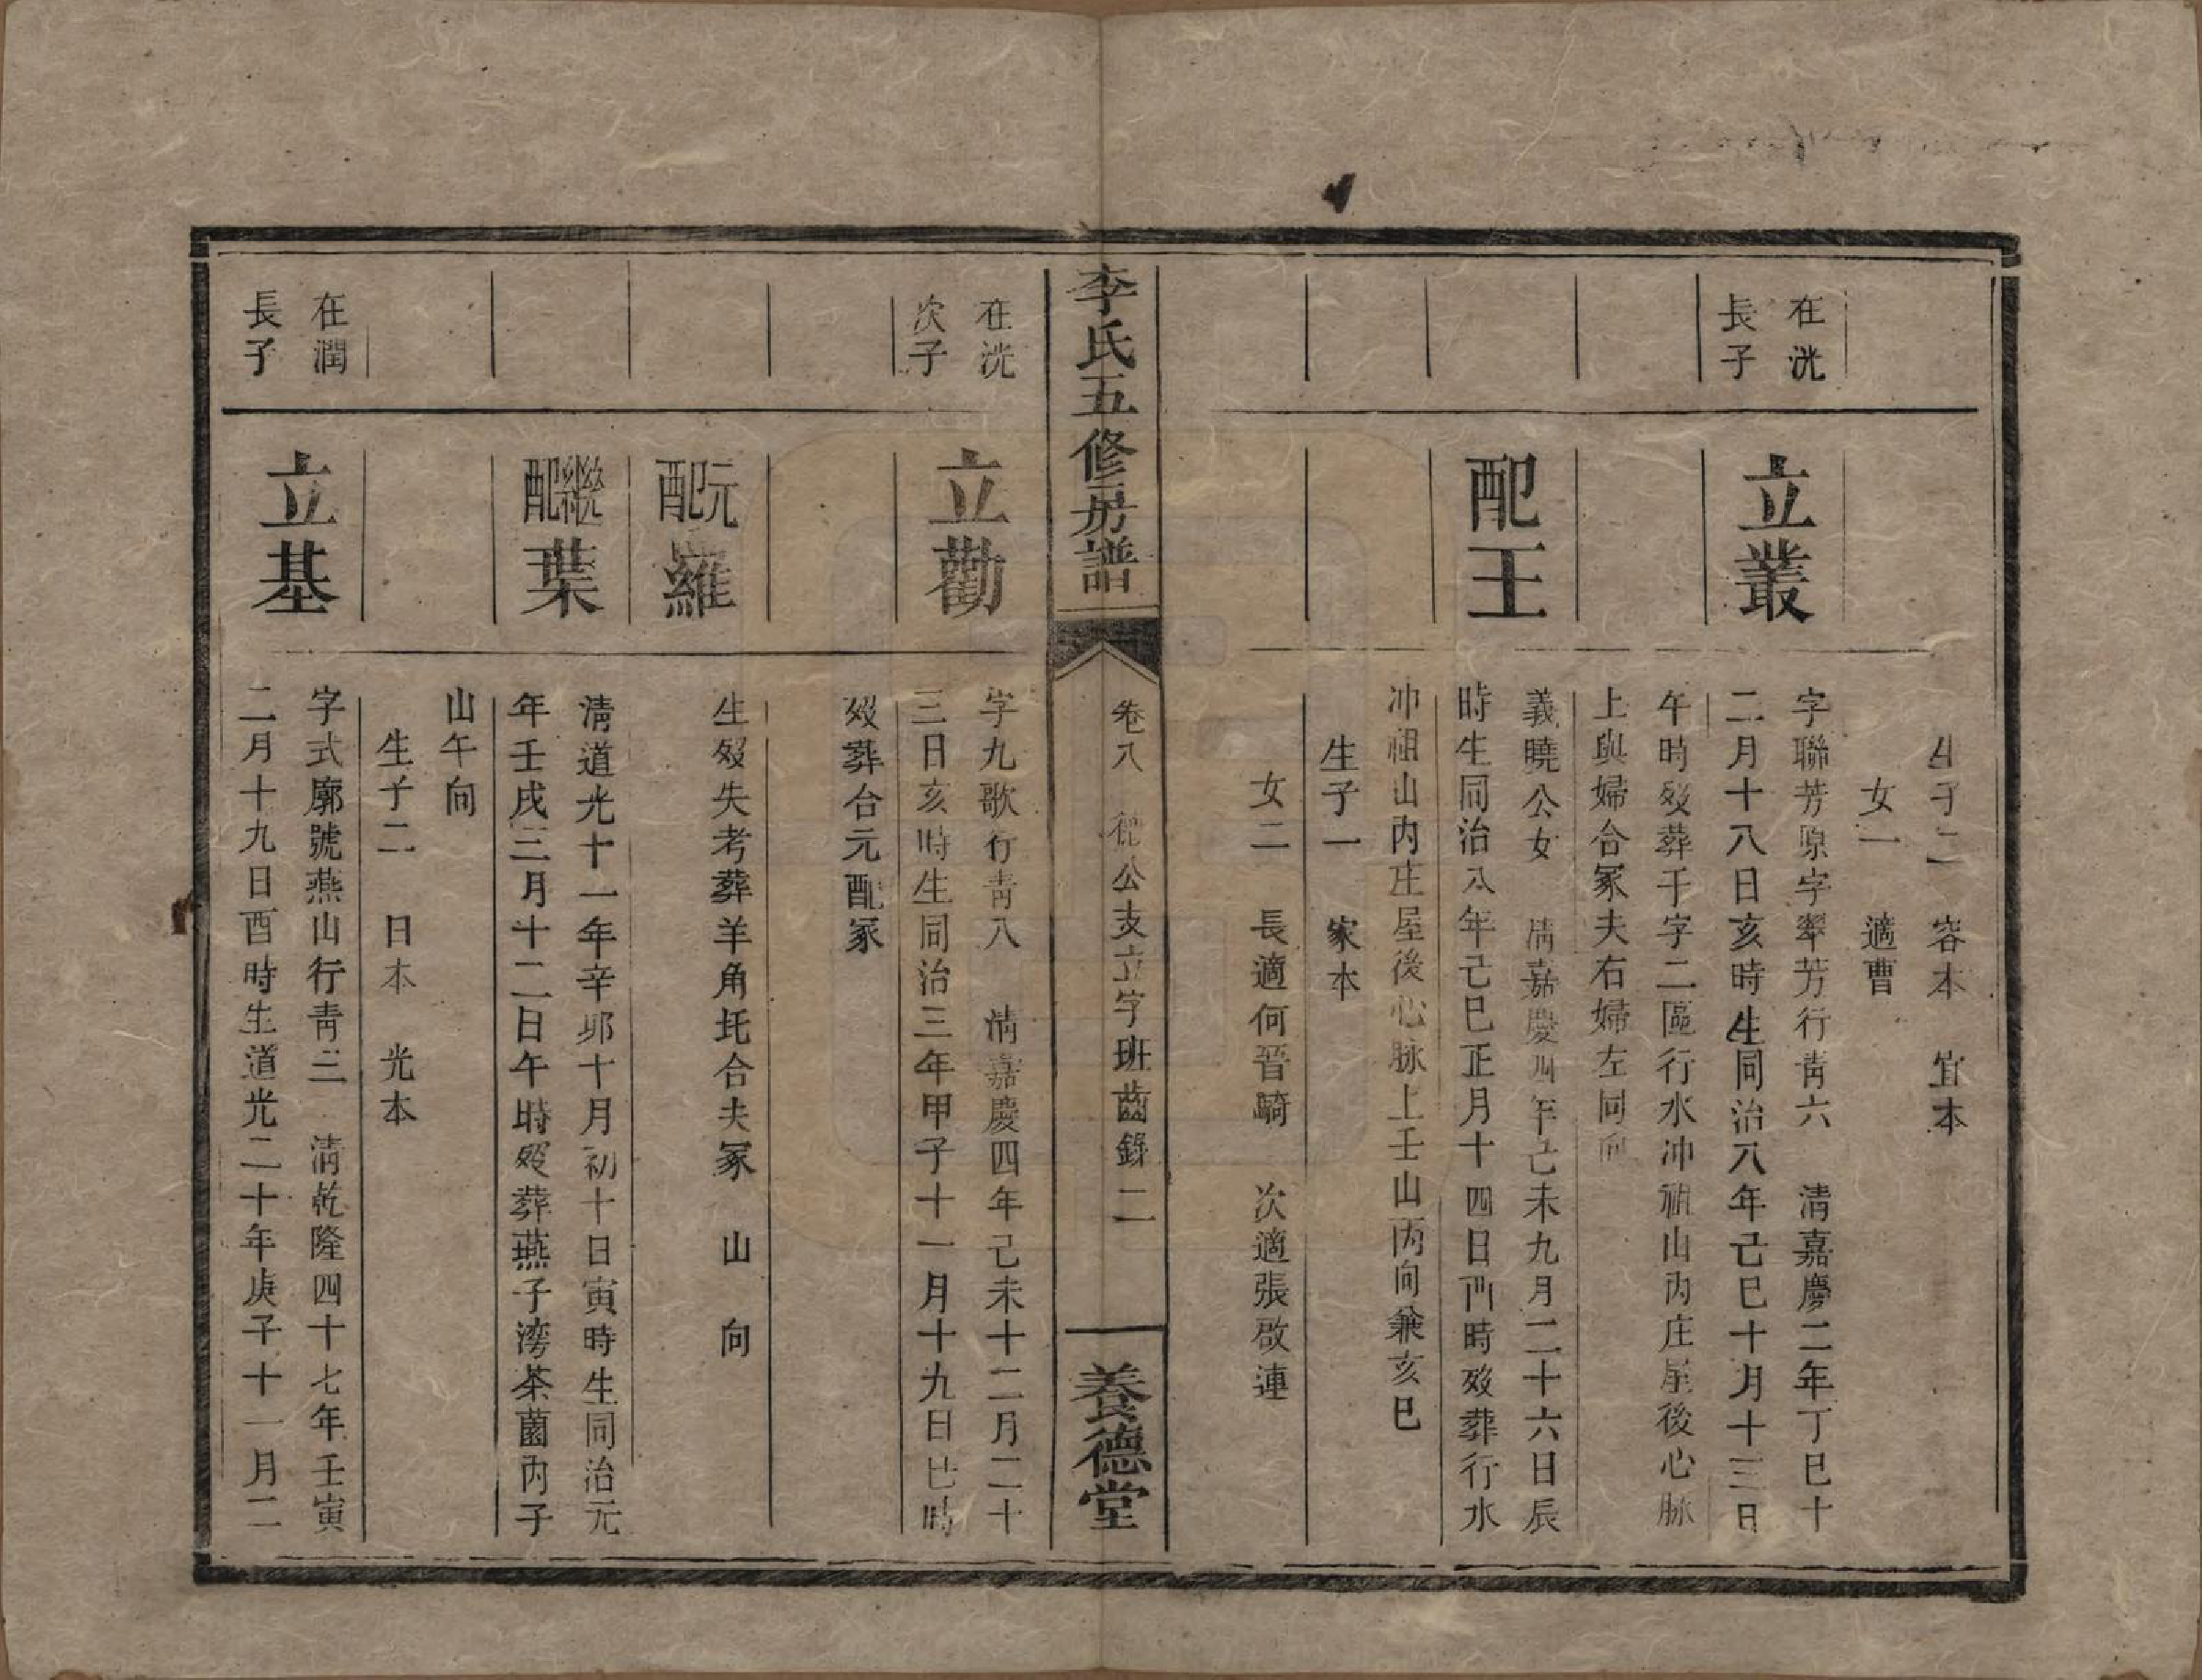 生子二　容本　宜本
女一　適曹
在洸
長子
立叢
字聯芳原字翠芳行靑六　清嘉慶二年丁巳十
二月十八日亥時生同治八年己巳十月十三日
午時歿葬千字二區行水冲祖山內庄屋後心脉
上與婦合冢夫右婦左同向
配王
義曉公女　清嘉慶四年己未九月二十六日辰
時生同治八年己巳正月十四日酉時歿葬行水
冲祖山內庄屋後心脉上壬山丙向兼亥巳
生子一　家本
女二　長適何晉崎　次適張啟連
李氏五修房譜
卷八　公支立字班齒錄　二
養德堂
在洸
次子
立勸
字九歌行靑八　淸嘉慶四年己未十二月二十
三日亥時生同治三年甲子十一月十九日巳時
歿葬台元配冢
元配羅
生歿失考葬羊角坵合夫冢　山　向
繼配葉
淸道光十一年辛卯十月初十日寅時生同治元
年壬戌三月十二日午時歿葬燕子灣茶薗內子
山午向
生子二　日本　光本
在潤
長子
立基
字式廓號燕山行靑三　淸乾隆四十七年壬寅
二月十九日酉時生道光二十年庚子十一月二